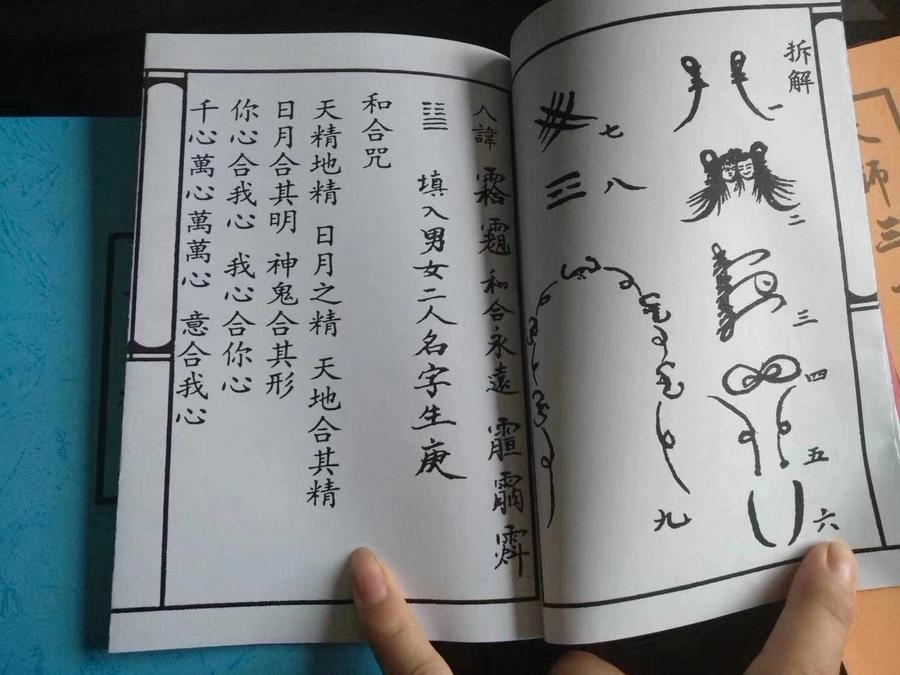 拆解
一
二
三
四
五
六
七
八
九
入諱 和合永遠
填入男女二人名字生庚
和合咒
天精地精 日月之精 天地合其精
日月合其明 神鬼合其形
你心合我心 我心合你心
千心萬心萬萬心 意合我心
師三